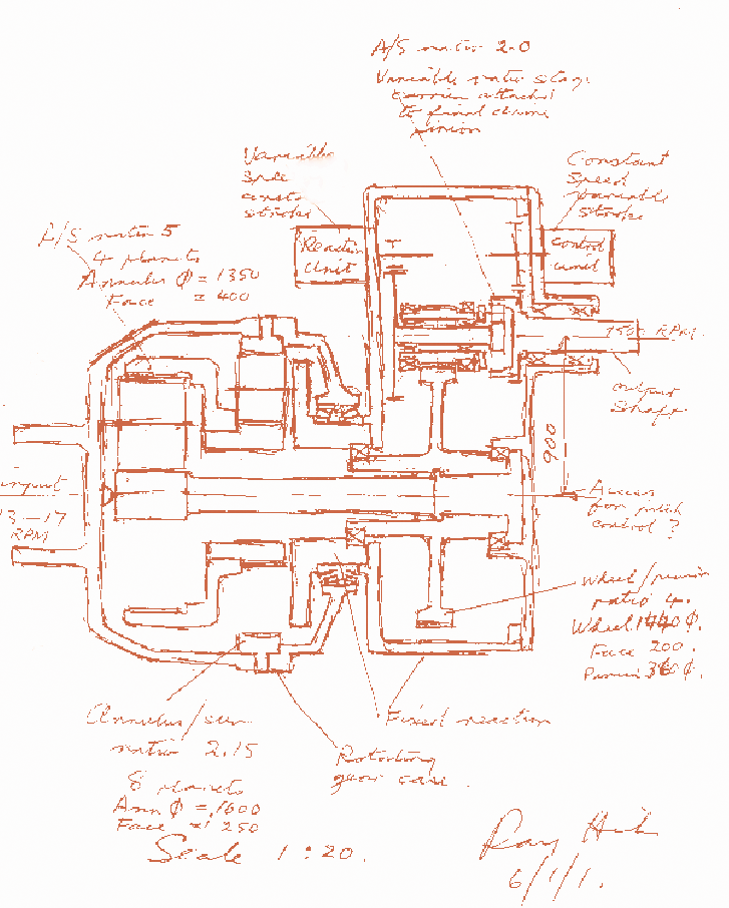 A/S ratio 2.0
Variable ratio stage
carrier attached
to final drive
pinion
Variable
speed
const
stroke
Constant
speed
variable
stroke
Reaction
Unit
Control
unit
A/S ratio 5
4 planets
Annulus Φ = 1350
Face = 400
1500 RPM
output
shaft
900
input
13-17
RPM
Access
for pitch
control ?
Wheel/pinion
ratio 4.
Wheel 1440 Φ.
Face 200.
Pinion 360 Φ.
Annulus/sun
ratio 2.15
8 planets
Ann Φ = 1600
Face = 250
Fixed reaction
Rotating
gear case.
Scale 1:20.
Ray
6/1/1.